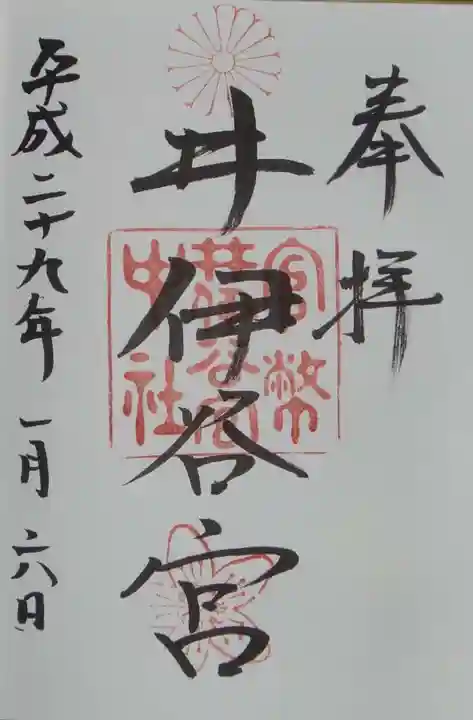 奉拝
井伊谷宮
官幣
中社
平成二十九年一月六日